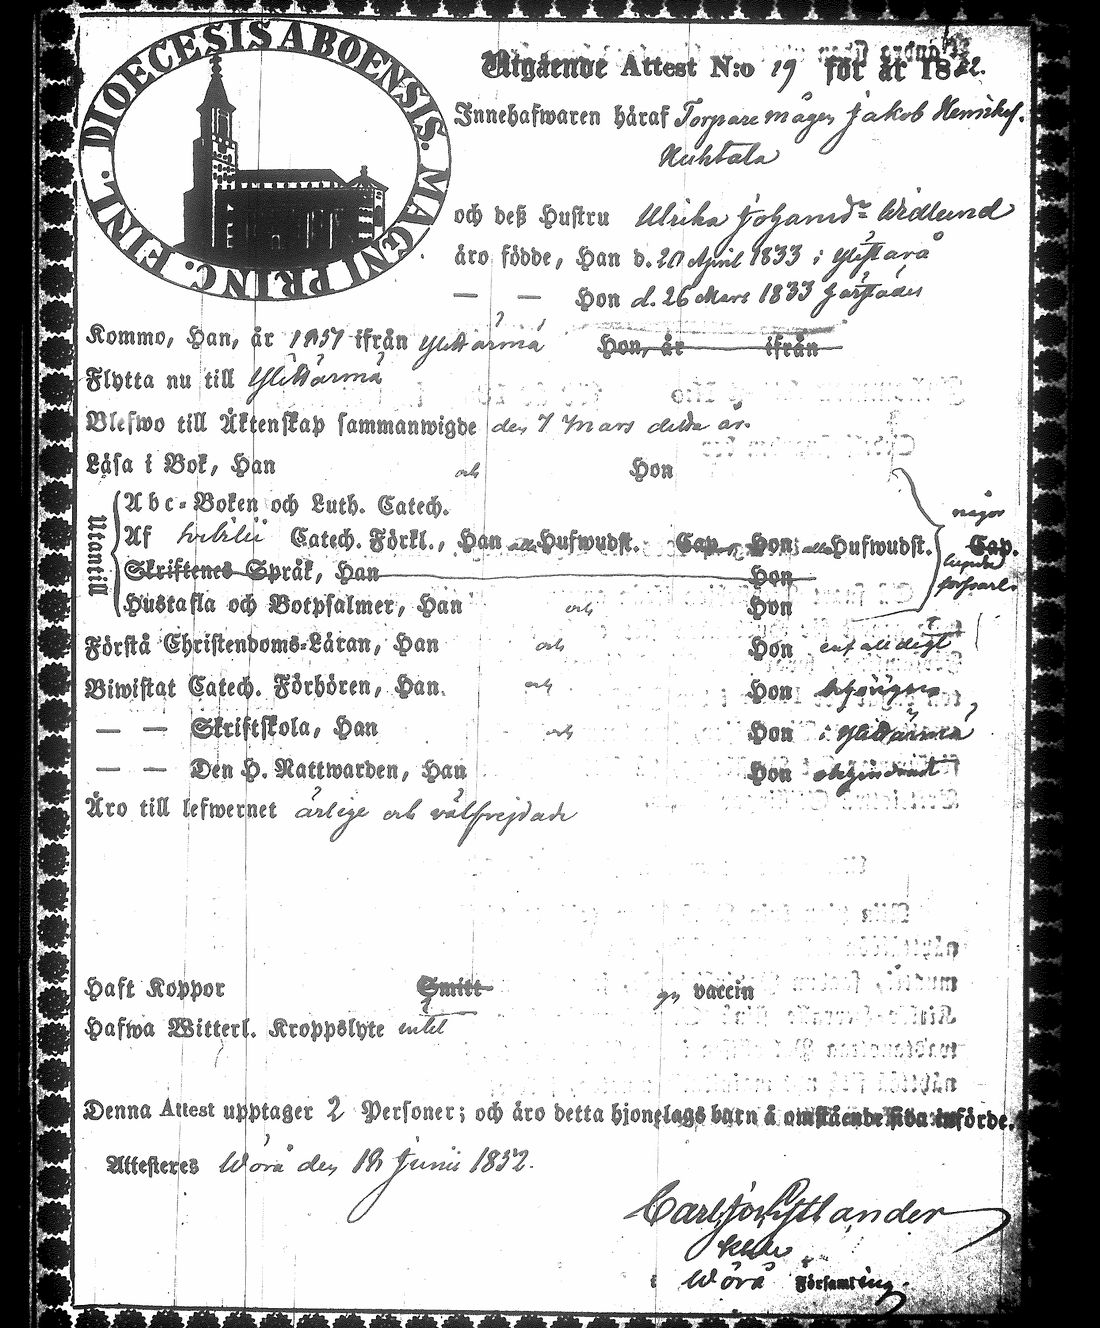 DIOECESIS ABOENSIS. MAGNI PRINC. FINL.
Utgående Attest N:o 19 för år 1852.
Innehafwaren häraf Torpare mågen Jakob Henriks.
Huhtala
och deß Hustru Ulrika Johansdr Widlund
äro födde, Han d. 20 April 1833 i
— — Hon d. 26 Mars 1833
Kommo, Han, år 1851 ifrån Ylihärmä Hon, år ifrån
Flytta nu till Ylihärmä
Blefwo till Äktenskap sammanwigde den 7 Mars detta år.
Läsa i Bok, Han och Hon
Utantill
Abc-Boken och Luth. Catech.
Af Catech. Förkl., Han alla Hufwudst. Cap. Hon alla Hufwudst. Cap.
någor
försvarl.
Skriftenes Språk, Han Hon
Hustafla och Botpsalmer, Han och Hon
Förstå Christendoms-Läran, Han och Hon enfalldigt
Biwistat Catech. Förhören, Han och Hon
— — Skriftskola, Han och Hon i Ylihärmä
— — Den H. Nattwarden, Han Hon obehindradt
Äro till lefwernet ärlige och välfrejdade
Haft Koppor Smitt- vaccin
Hafwa Witterl. Kroppslyte intet
Denna Attest upptager 2 Personer; och äro detta hjonelags barn å omstående sida införde.
Attesteres Wörå den Junii 1852.
Carl
i Wörå Församling.